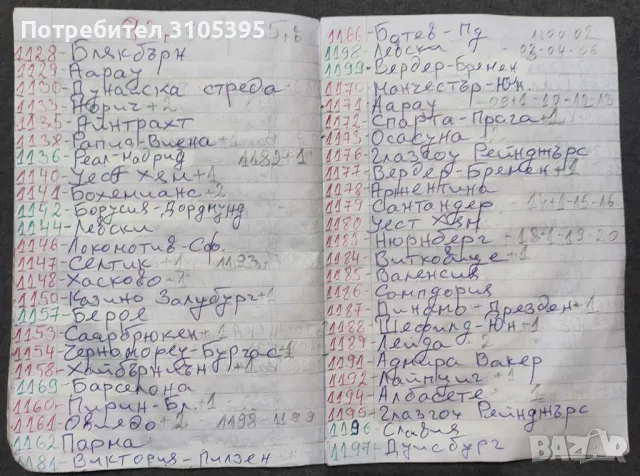 Потребител 3105395
5,8
1128-Блякбърн
1129-Аарау
1130-Дунайска стреда
1133-Цюрих+2
1135-Айнтрахт
1138-Рапид-Виена+
1136-Реал-Мадрид 1182+1
1140-Уест Хям+1
1141-Бохемианс-2
1142-Борусия-Дордмунд
1144-Левски
1146-Локомотив-Сф.
1147-Селтик +1 1193
1148-Хасково+1
1150-Казино Залцбург+1
1157-Берое
1153-Саарбрюкен+1
1154-Черноморец-Бургас+1
1158-Хайбърниън+1
1169-Барселона
1160-Пирин-Бл.+1
1161-Овиедо+2 1198-1199
1162 Парма
1181-Виктория-Пилзен
1166-Ботев-Пд 1200.02
1198-Левски -03-04-06
1199-Вердер-Бремен
1170-Манчестър-Юн.
1171-Аарау -09+1-10-12.13
1172-Спарта-Прага+1
1173-Осасуна
1176-Глазгоу Рейнджърс
1177-Вердер-Бремен+1
1178-Аржентина
1179-Сантандер -14+1-15-16
1180-Уест Хям
1183-Нюрнберг -18+1-19-20
1184-Витковице+1
1185-Валенсия
1186-Сампдория
1187-Динамо-Дрезден+1
1188-Шефилд-Юн+1
1189-Лейда -2
1191-Адмира Вакер
1192-Лайпциг+1
1194-Албасете 1
1195-Глазгоу Рейнджърс
1196-Славия
1197-Дуисбург
bazar